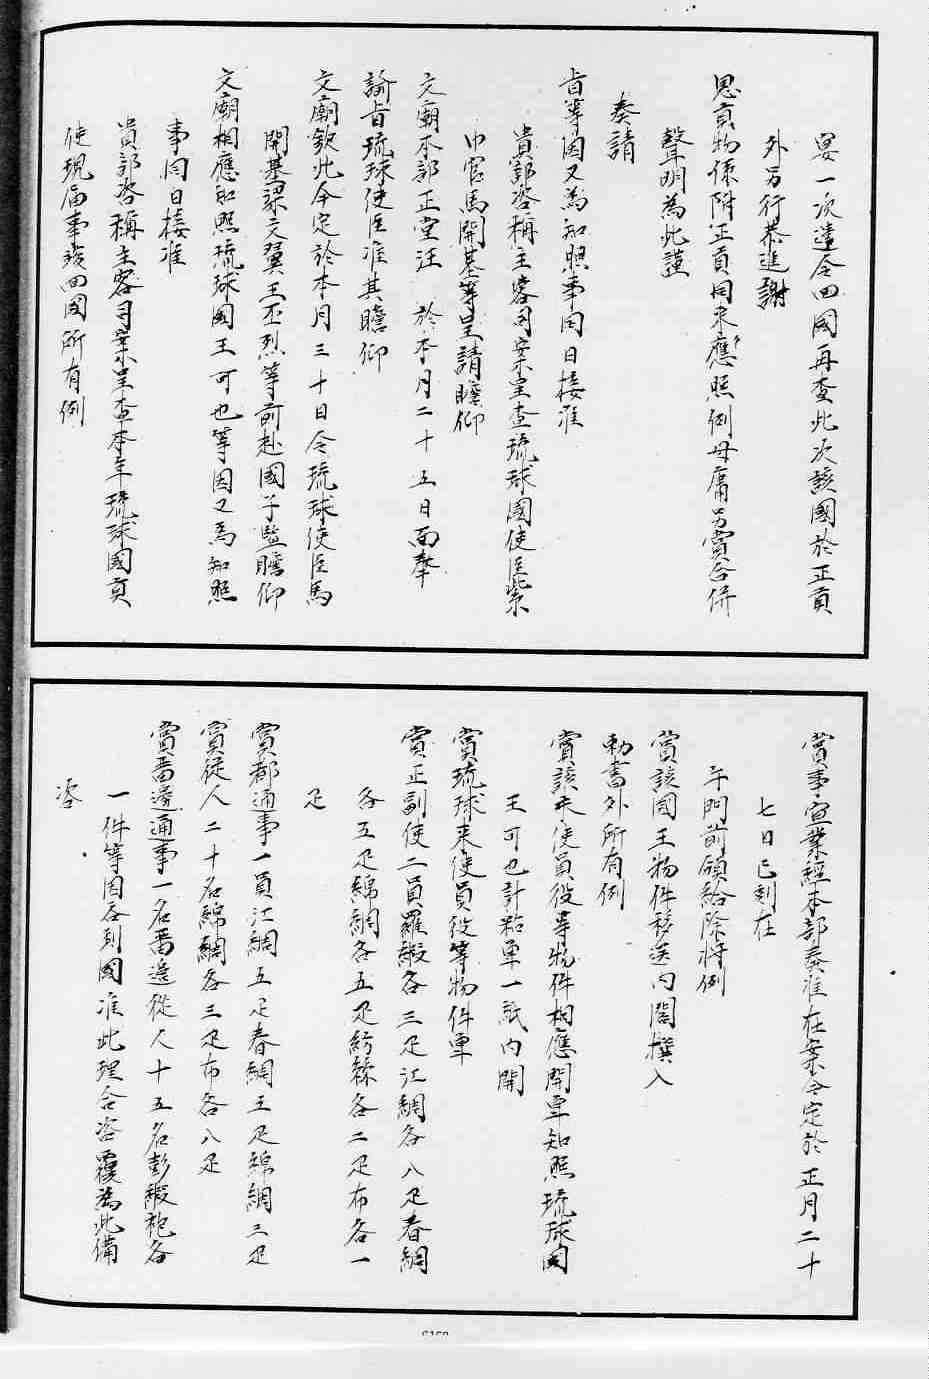 宴一次遣令回國再查此次該國於正貢
外另行恭進謝
恩貢物係附正貢同來應照例毋庸另賞合併
聲明為此謹
奏請
旨等因又為知照事同日接准
貴部咨稱主客司案呈查琉球國使臣紫
巾官馬開基等呈請瞻仰
文廟本部正堂汪 於本月二十五日面奉
諭旨琉球使臣准其瞻仰
文廟欽此今定於本月三十日令琉球使臣馬
開基梁文翼王丕烈等前赴國子監瞻仰
文廟相應知照琉球國王可也等因又為知照
事同日接准
貴部咨稱主客司案呈查本年琉球國貢
使現届事竣回國所有例
賞事宜業經本部奏准在案今定於正月二十
七日巳刻在
午門前頒給除將例
賞該國王物件移送內閣撰入
勅書外所有例
賞該來使員役等物件相應開單知照琉球國
王可也計粘單一紙內開
賞琉球來使員役等物件單
賞正副使二員羅緞各三疋江綢各八疋春綢
各五疋綿綢各五疋紡絲各二疋布各一
疋
賞都通事一員江綢五疋春綢五疋綿綢三疋
賞從人二十名綿綢各三疋布各八疋
賞畱邊通事一名畱邊從人十五名彭緞袍各
一件等因各到國准此理合咨覆為此備
咨